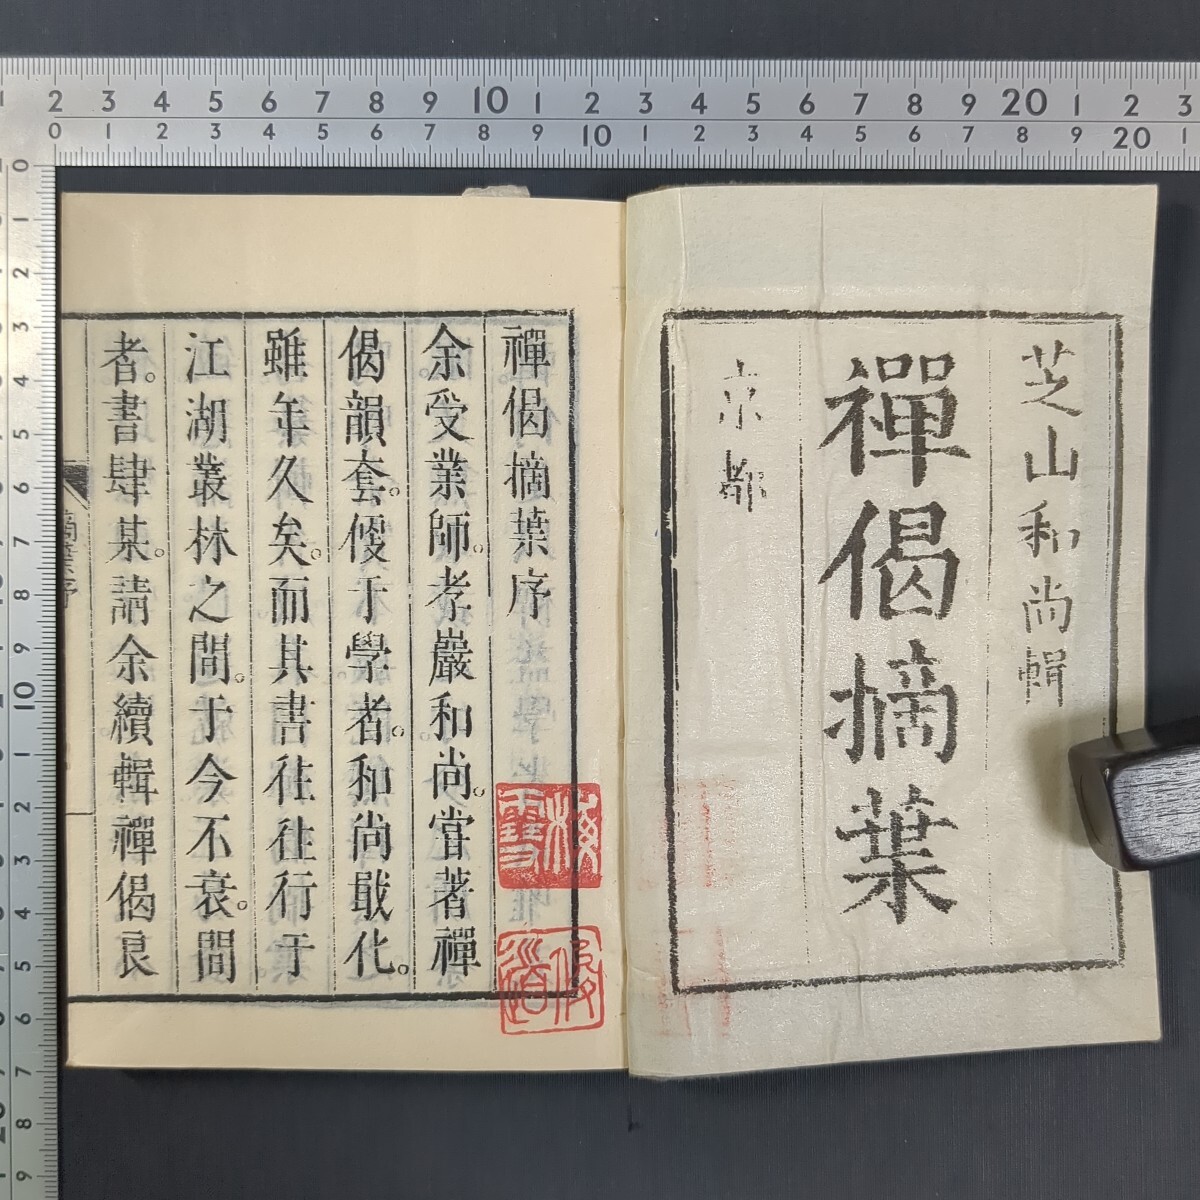 芝山和尚輯
禪偈摘葉
京都
禪偈摘葉序
余受業師孝巖和尚。嘗著禪
偈韻套。便于學者。和尚戢化。
雖年久矣。而其書往往行于
江湖叢林之間。于今不衰。間
者。書肆某。請余續輯禪偈良
摘葉序
2 3 4 5 6 7 8 9 10 1 2 3 4 5 6 7 8 9 20 1 2 3
0 1 2 3 4 5 6 7 8 9 10 1 2 3 4 5 6 7 8 9 20 1
0 1 2 3 4 5 6 7 8 9 10 1 2 3 4 5 6 7 8 9